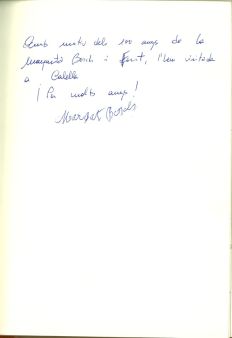 Amb motiu dels 100 anys de la
Margarita Bosch i Font, l'hem visitada
a Calella
¡Per molts anys!